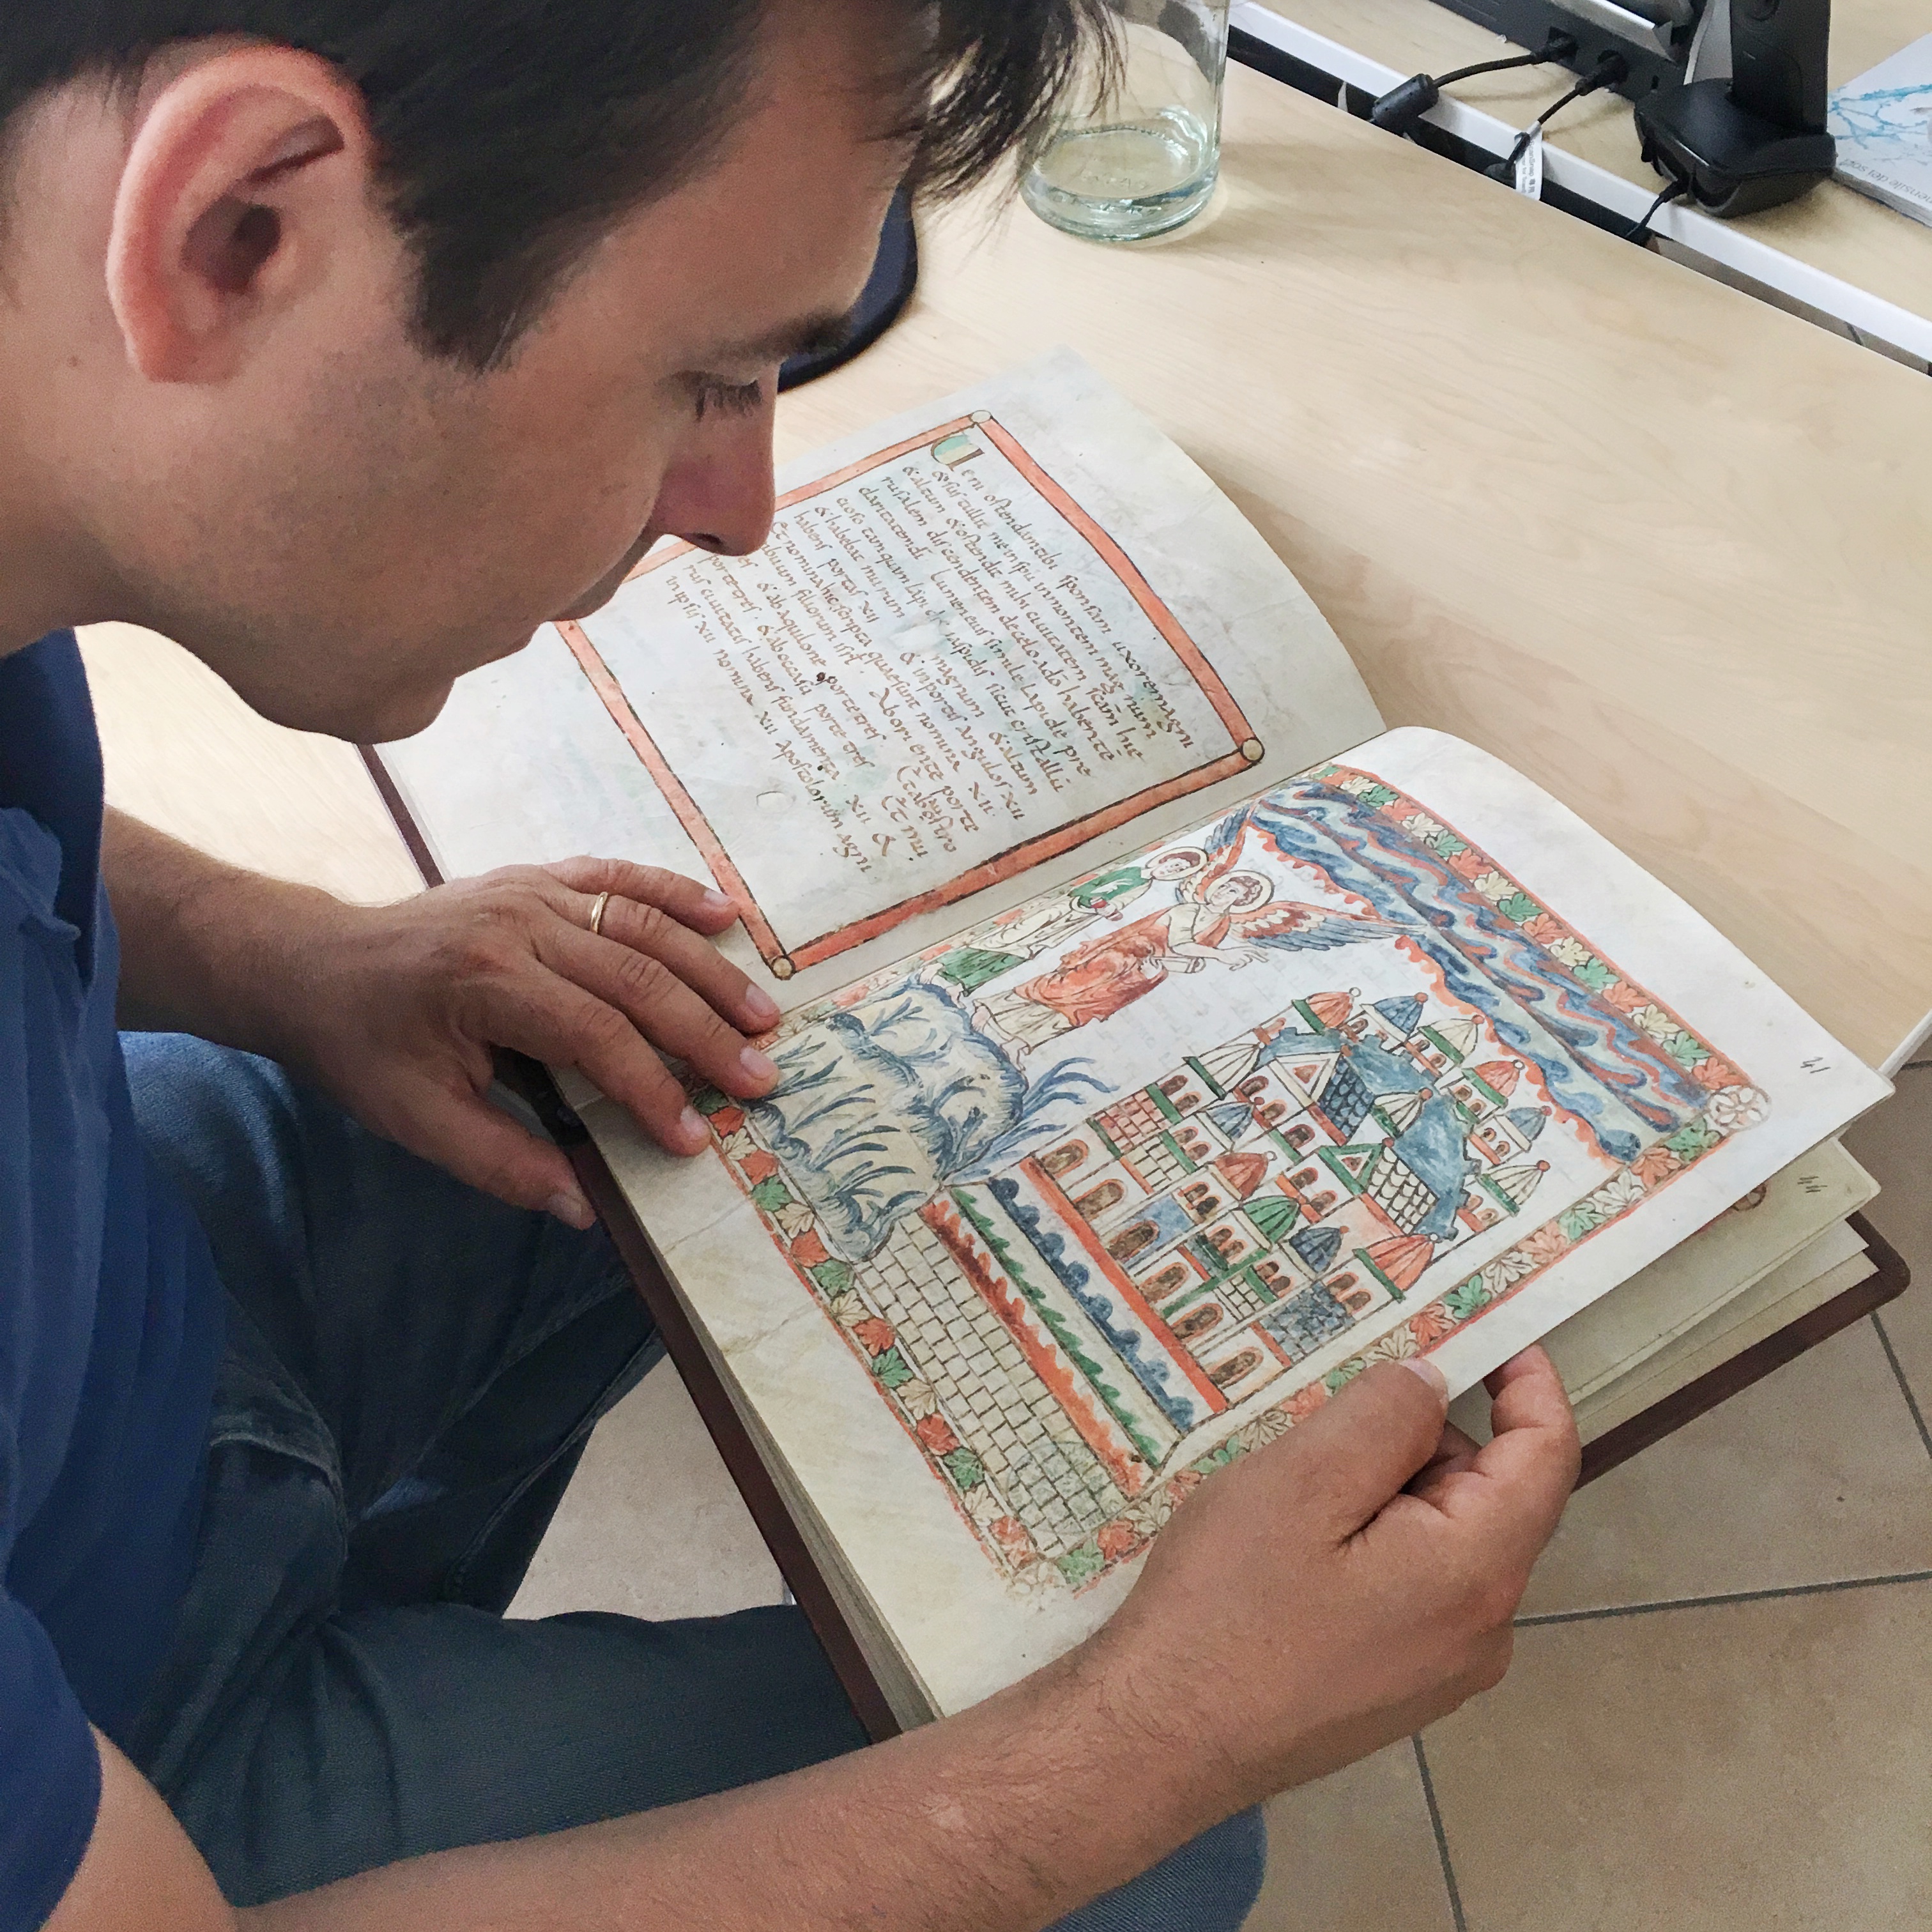 Ueni oſtendamtibi ſponſam uxorem agni
&ſuſtullit me inſpu inmontem magnum
&altum &oſtendit mihi ciuitatem ſcam hie
ruſalem diſcendentem decelo ado habente
claritatemdi Lumen eiuſ ſimile Lapide pre
cioſo tamquam lapidiſ iaſpidiſ ſicut criſtallu
&habebat murum magnum &altum
habenſ portaſ XII & inportiſ anguloſ XII
Et nomina inſcripta quaeſunt nomina XII
filiorum iſrl Aboriente porte
&abaquilone portetreſ Etabauſtro
portetreſ &aboccaſu porte treſ Et mu
ruſ ciuitatiſ habenſ fundamenta XII &
inipſiſ XII nomina XII apoſtolorum agni
41
44